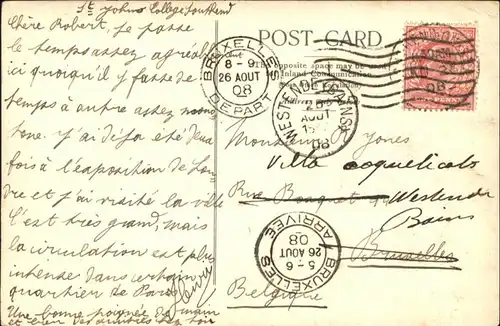 St Johns College, Southend
Chère Robert, je passe
le temps assez agréable
ici quoiqu'il y fasse de
temps à autre assez mono
tone. J'ai déja été deux
fois à l'exposition de Lon
dre et j'ai visité la ville
C'est très grand, mais
la circulation est plus
intense dans certain
quartier de Paris
Une bonne poignée de main
Henry
POST CARD
The opposite space may be used
for Inland Communication
BRUXELLES
8 - 9
26 AOUT
08
DEPART
WESTENDE
26
AOUT
08
PENNY
Monsieur R Jones
Villa Coquelicots
Rue Bosquet
Westende
Bains
Bruxelles
Belgique
BRUXELLES
5 - 6
26 AOUT
08
ARRIVEE